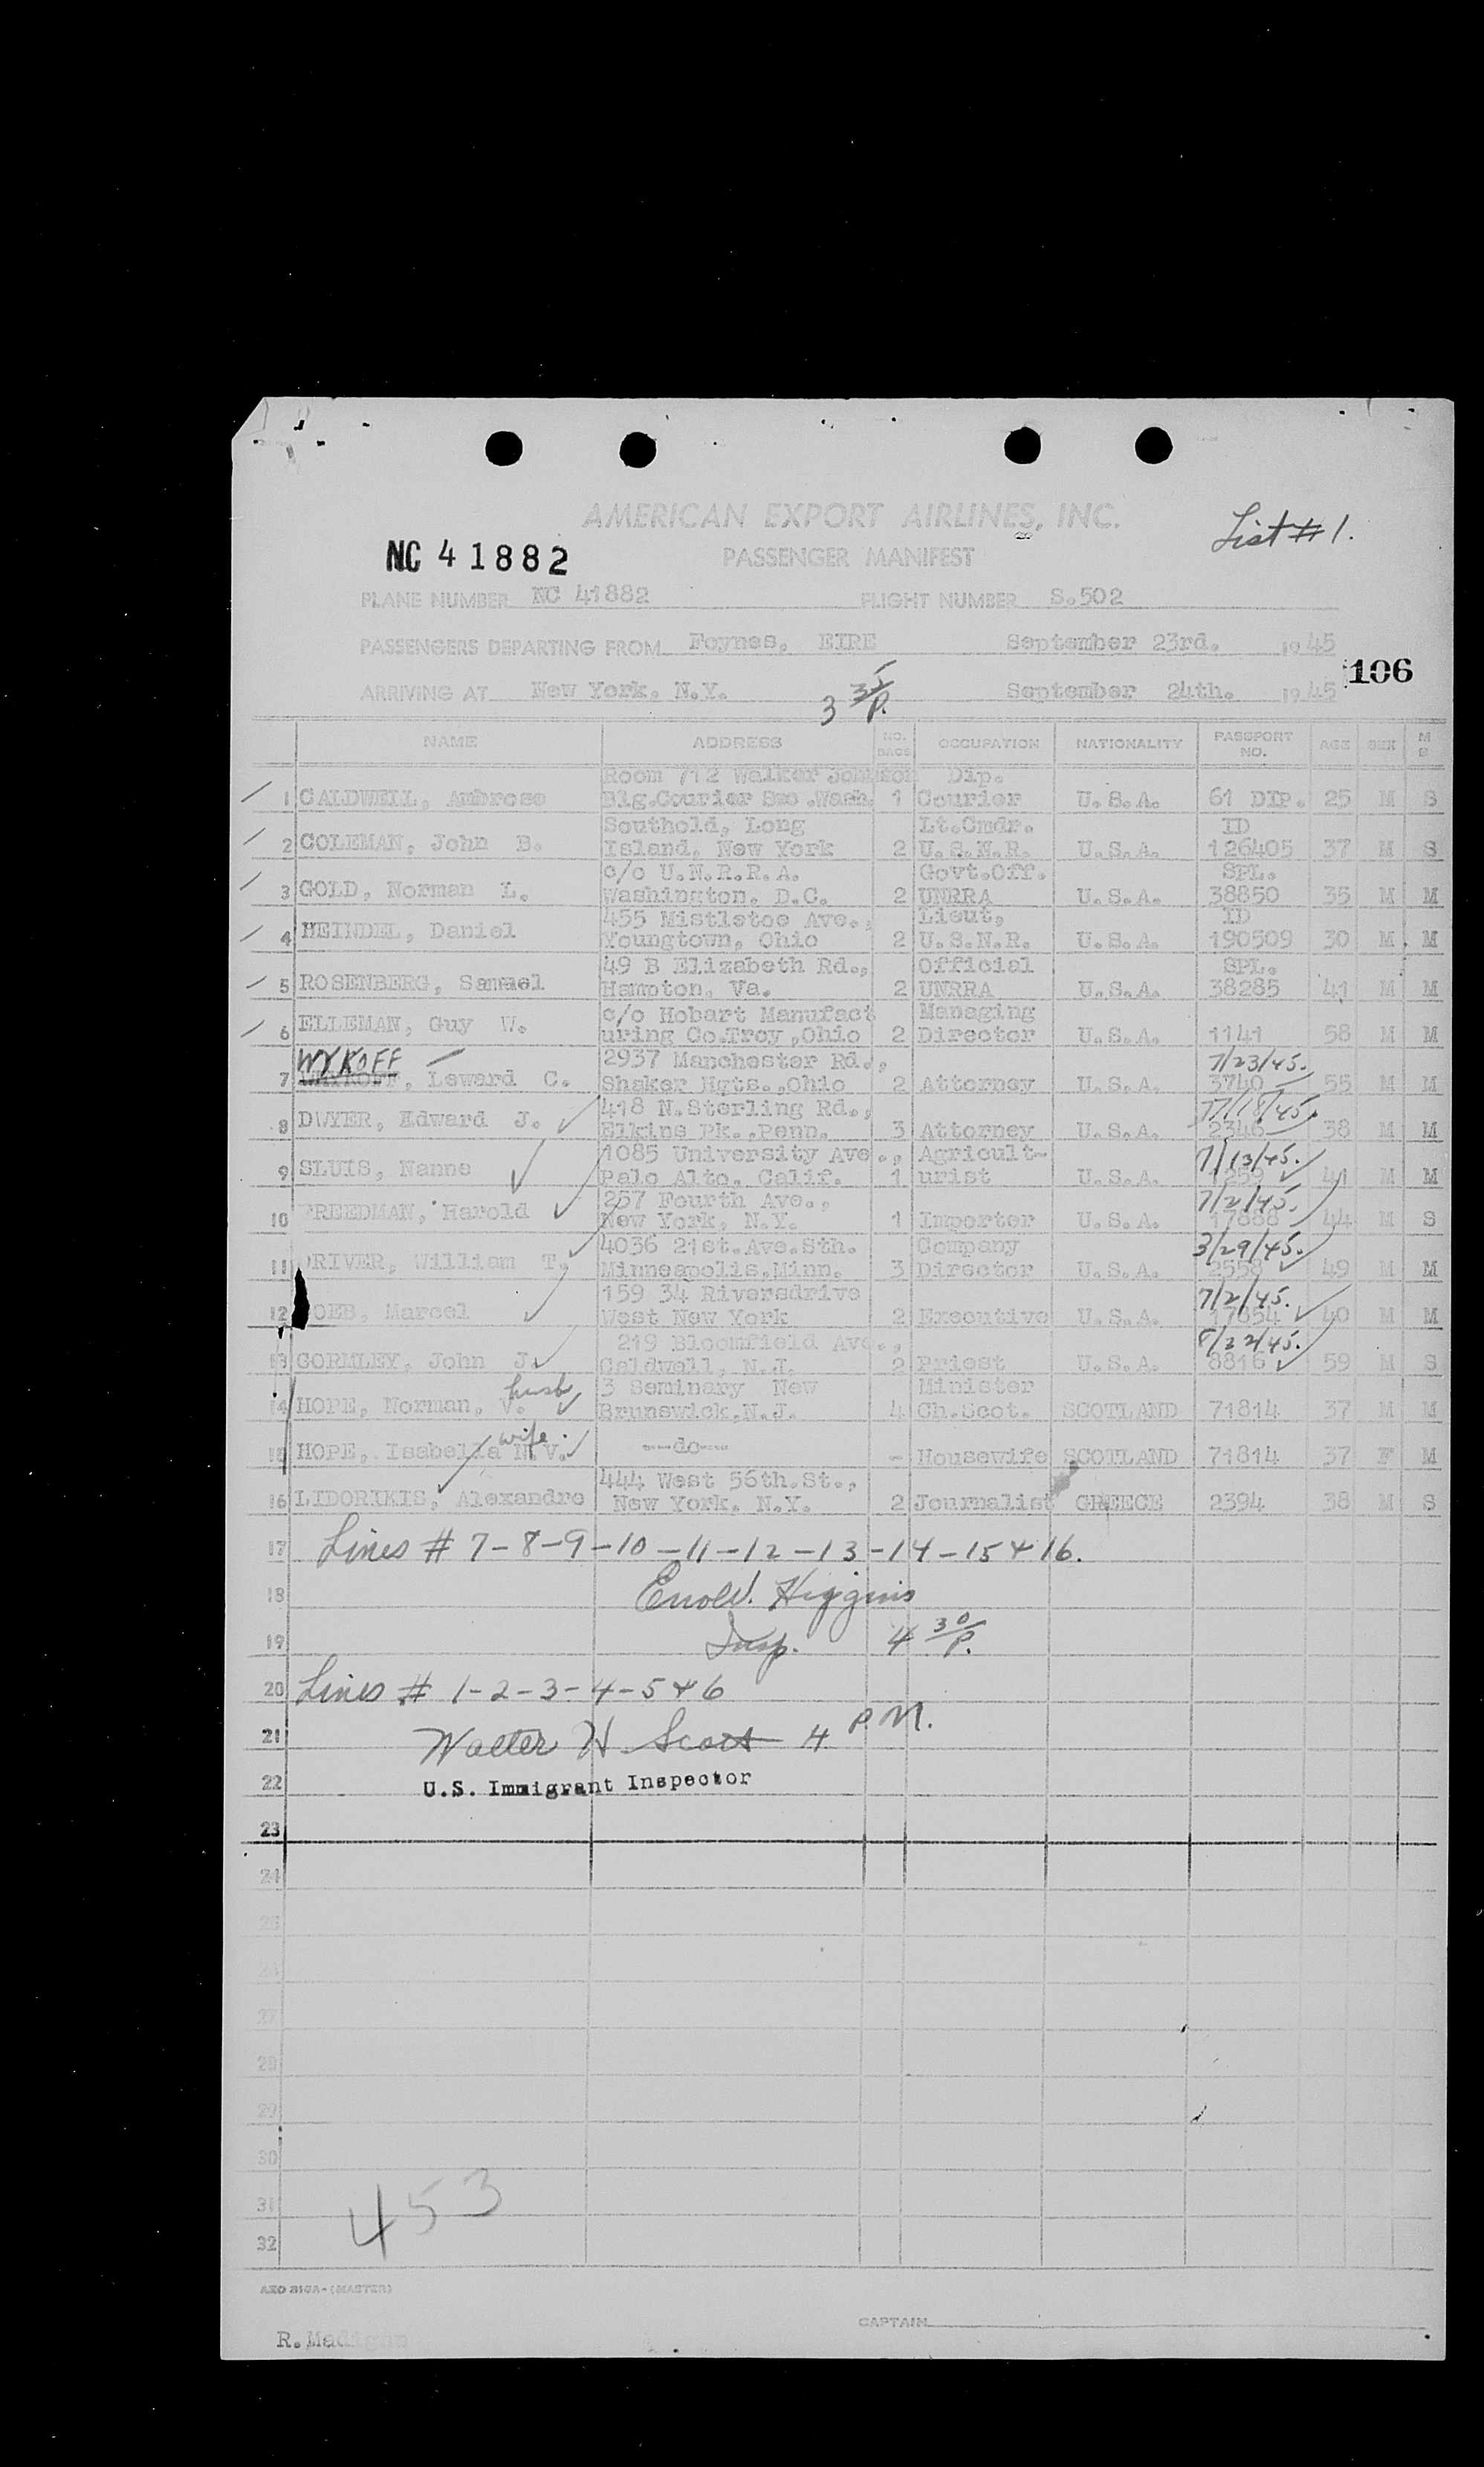 AMERICAN EXPORT AIRLINES, INC.
List # 1.
NC 41882
PASSENGER MANIFEST
PLANE NUMBER NC 41882 FLIGHT NUMBER S.502
PASSENGERS DEPARTING FROM Foynes, EIRE September 23rd. 1945
106
ARRIVING AT New York, N.Y. 3 35/P. September 24th. 1945
NAME ADDRESS NO. BAGS OCCUPATION NATIONALITY PASSPORT NO. AGE SEX M S
Room 712 Walker Johnson Dip.
1 CALDWELL, Ambrose Blg.Courier Sec.Wash. 1 Courier U.S.A. 61 DIP. 25 M S
Southold, Long Lt.Cmdr. ID
2 COLEMAN, John B. Island, New York 2 U.S.N.R. U.S.A. 126405 37 M S
c/o U.N.R.R.A. Govt.Off. SPL.
3 GOLD, Norman L. Washington, D.C. 2 UNRRA U.S.A. 38850 35 M M
455 Mistletoe Ave., Lieut, ID
4 HEINDEL, Daniel Youngtown, Ohio 2 U.S.N.R. U.S.A. 190509 30 M M
49 B Elizabeth Rd., Official SPL.
5 ROSENBERG, Samuel Hampton, Va. 2 UNRRA U.S.A. 38285 41 M M
c/o Hobart Manufact Managing
6 ELLEMAN, Guy W. uring Co.Troy,Ohio 2 Director U.S.A. 1141 58 M M
WYKOFF 2937 Manchester Rd., 7/23/45.
7 Leward C. Shaker Hgts.,Ohio 2 Attorney U.S.A. 3740 55 M M
418 N.Sterling Rd., 7/18/45.
8 DWYER, Edward J. Elkins Pk.,Penn. 3 Attorney U.S.A. 2346 38 M M
1085 University Ave., Agricult- 7/13/45.
9 SLUIS, Nanne Palo Alto, Calif. 1 urist U.S.A. 1259 41 M M
257 Fourth Ave., 7/2/45.
10 FREEDMAN, Harold New York, N.Y. 1 Importer U.S.A. 17888 44 M S
4036 21st.Ave.Sth. Company 3/29/45.
11 DRIVER, William T. Minneapolis.Minn. 3 Director U.S.A. 2558 49 M M
159 34 Riversdrive 7/2/45.
12 OEB, Marcel West New York 2 Executive U.S.A. 17854 40 M M
219 Bloomfield Ave., 8/22/45.
13 GORMLEY, John J. Caldwell, N.J. 2 Priest U.S.A. 8816 59 M S
husb 3 Seminary New Minister
14 HOPE, Norman, V. Brunswick,N.J. 4 Ch.Scot. SCOTLAND 71814 37 M M
wife
15 HOPE, Isabella N.V. ---do--- - Housewife SCOTLAND 71814 37 F M
444 West 56th.St.,
16 LIDORIKIS, Alexandre New York, N.Y. 2 Journalist GREECE 2394 38 M S
17 Lines # 7-8-9-10-11-12-13-14-15 & 16.
18 Higgins
19 Insp. 4 30/P.
20 Lines # 1-2-3-4-5 & 6
21 Walter H Scott 4 P.M.
22 U.S. Immigrant Inspector
23
24
25
26
27
28
29
30
31
32
453
AEO 316A-(MASTER)
CAPTAIN
R.Madigan